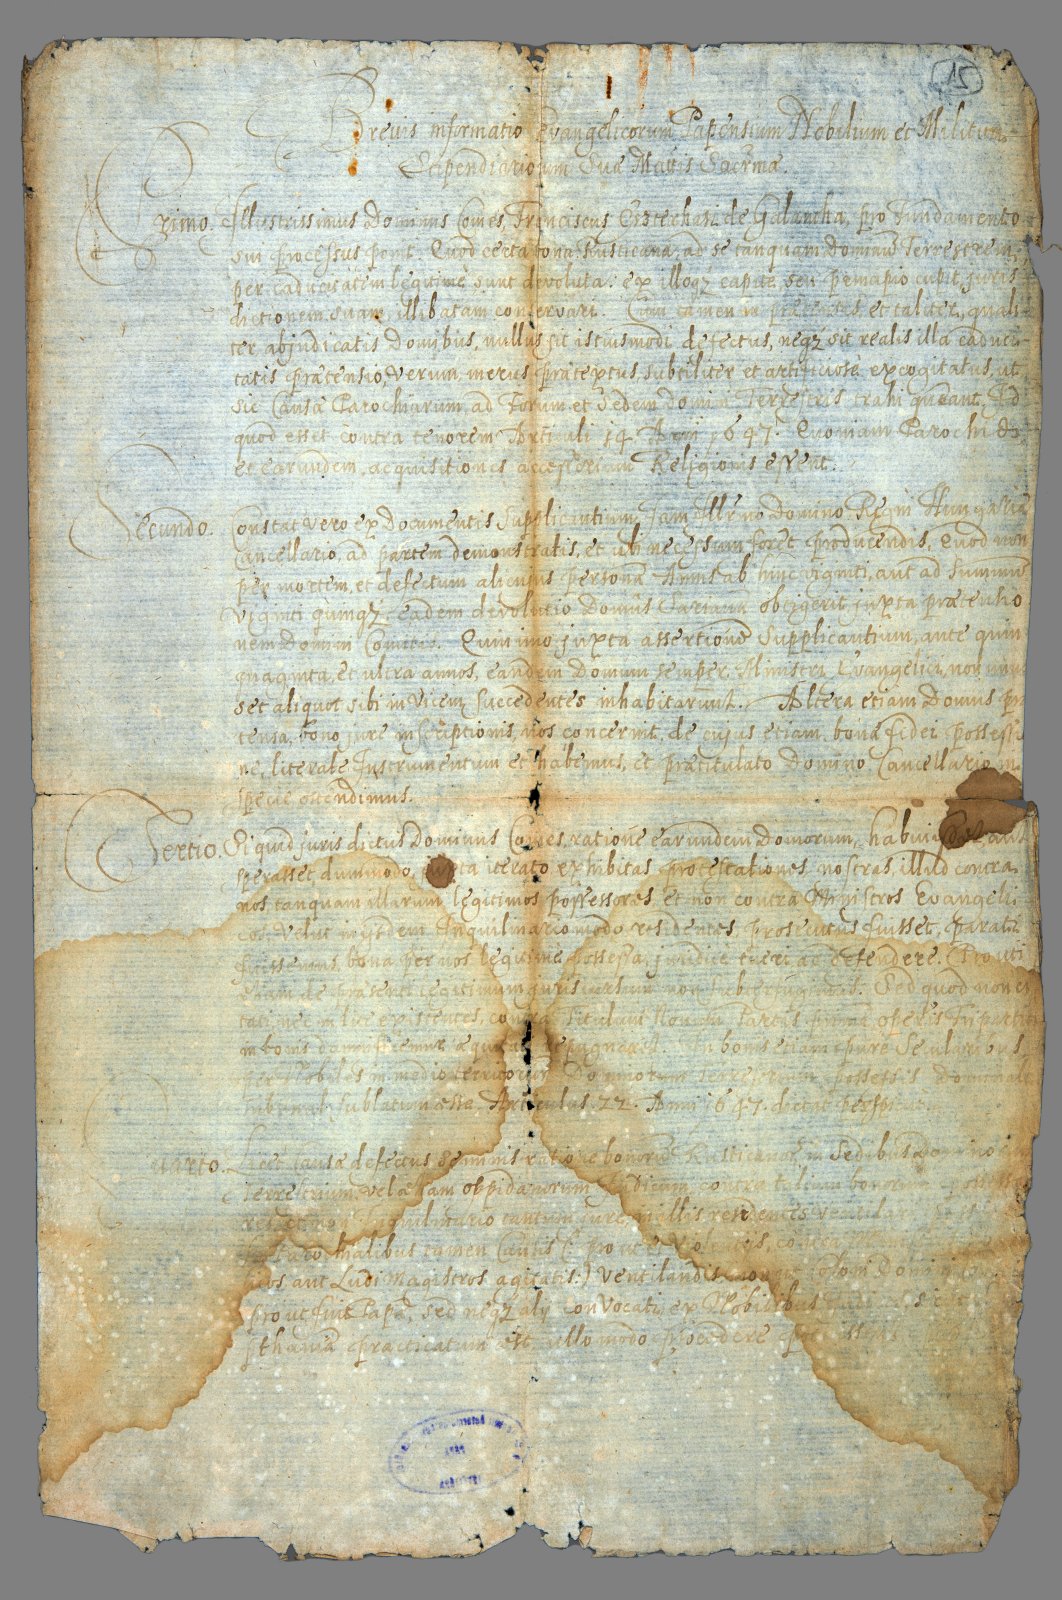 15
Brevis Informatio Evangelicorum Papensium Nobilium et Militum
Stipendiariorum Suae Mattis Sacrmae.
Primo. Illustrissimus Dominus Comes, Franciscus Eszterhasi de Galantha, pro fundamento
sui processus ponit. Quod certa bona Rusticana, ad se tanquam Dominum Terrestrem,
per caducitatem legitime sunt devoluta: ex illoqz capite, seu principio cupit, juris
dictionem suam illibatam conservari. Cum tamen in praetensis, et taliter, quali
ter abjudicatis Domibus, nullus sit istiusmodi defectus, neqz sit realis illa caduci
tatis praetensio, verum merus praetextus, subtiliter et artificiose excogitatus, ut
sic Causae Parochiarum, ad Forum et Sedem Domini Terrestris trahi queant, Id
quod esset contra tenorem Articuli 14. Anni 1647. Quoniam Parochiae
et earundem acquisitiones accessorium Religionis essent.
Secundo. Constat vero ex Documentis Supplicantium, jam Illrmo Domino Regni Hungariae
Cancellario, ad partem demonstratis, et ubi necessum foret producendis, Quod non
per mortem, et defectum alicujus personae Annis ab hinc viginti, aut ad summum
viginti quinqz eadem devolutio Domus obtigerit, juxta praetensio
nem Domini Comitis. Quin imo juxta assertionem Supplicantium, ante quin
quaginta, et ultra annos, eandem Domum semper Ministri Evangelici, non unus
set aliquot sibi in vicem succedentes inhabitarunt. Altera etiam Domus prae
tensa, bono jure inscriptionis, nos concernit, de cujus etiam, bonae fidei possessio
ne, literale Instrumentum et habemus, et praetitulato Domino Cancellario in
specie ostendimus.
Tertio. Si quid juris dictus Dominus Comes, ratione earundem Domorum, habuisset aut
sperasset, dummodo juxta iterato exhibitas protestationes nostras, illud contra
nos tanquam illarum legitimos possessores, et non contra Ministros Evangeli
cos, velut in iisdem Inquilinario modo residentes prosecutus fuisset, parati
fuissemus, bona per nos legitime possessa, juridice tueri ac defendere. Prouti
etiam de praesenti legitimum juris cursum non subterfugimus. Sed quod non ci
tati, nec in lite existentes, contra Titulum Nonum Partis primae operis Tripartiti
in bonis damnificemur, aequitati repugnaret. In bonis etiam pure Secularibus
per Nobiles in medio territoriorum Dominorum Terrestrium possessis
sublatum esse, Articulus 22. Anni 1647. dictat perspicue
Quarto. Licet Causae defectus Seminis ratione bonorum Rusticanorum in Sedibus Dominorum
Terrestrium, vel etiam oppidanorum Judicum contra talium bonorum possessores
non Inquilinario tantum jure, in illis residentes ventilari
tamen Causis (: prout et
aut Ludi Magistros agitatis:) ventilandis
prout fuit Papae, sed neqz alij convocati, ex Nobilibus
practicatum est, ullo modo procedere